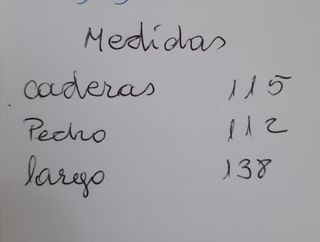 Medidas
caderas 115
Pecho 112
largo 138